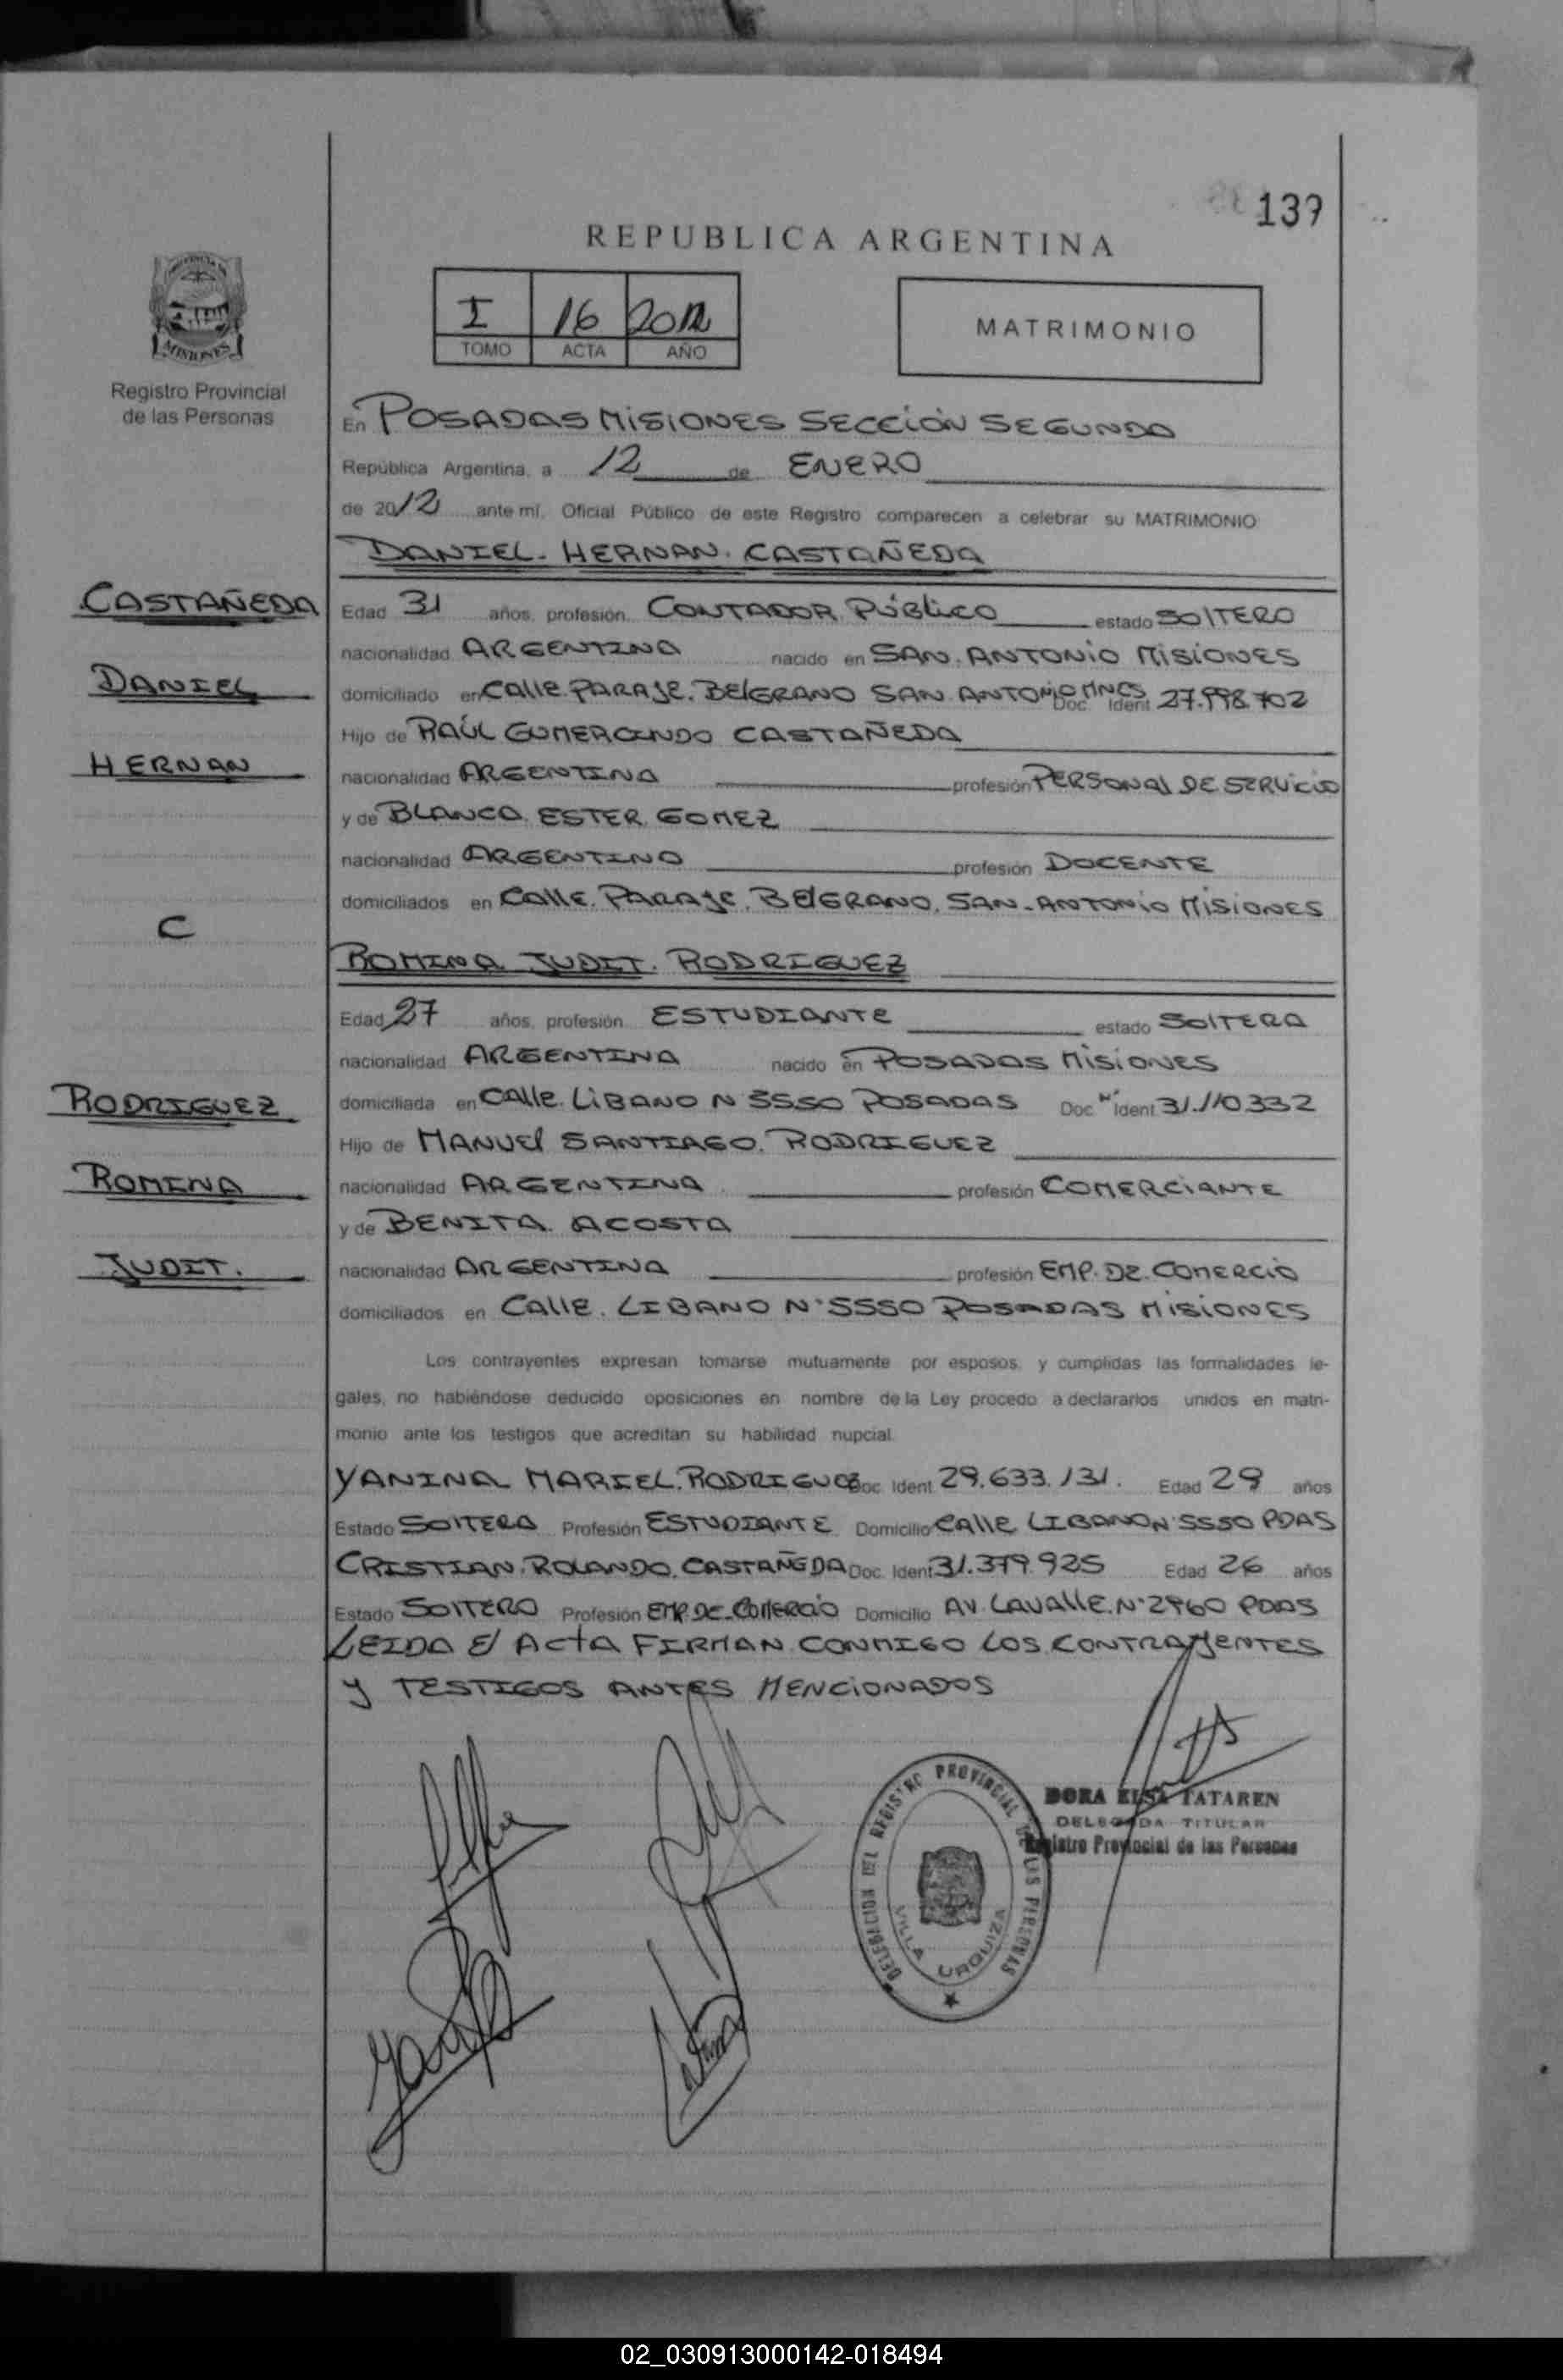 139
REPUBLICA ARGENTINA
I 16 2012
TOMO ACTA AÑO
MATRIMONIO
MISIONES
Registro Provincial
de las Personas
En POSADAS MISIONES SECCIÓN SEGUNDA
República Argentina, a 12 de ENERO
de 2012 ante mí, Oficial Público de este Registro comparecen a celebrar su MATRIMONIO
DANIEL. HERNAN. CASTAÑEDA
CASTAÑEDA
DANIEL
HERNAN
C
Edad 31 años, profesión CONTADOR PÚBLICO estado SOLTERO
nacionalidad ARGENTINA nacido en SAN. ANTONIO MISIONES
domiciliado en CALLE. PARAJE. BELGRANO SAN ANTONIO MNES Doc. Ident 27.998.702
Hijo de RAÚL GUMERCINDO CASTAÑEDA
nacionalidad ARGENTINA profesión PERSONAL DE SERVICIO
y de BLANCA ESTER GOMEZ
nacionalidad ARGENTINA profesión DOCENTE
domiciliados en CALLE. PARAJE. BELGRANO. SAN. ANTONIO MISIONES
ROMINA JUDIT. RODRIGUEZ
RODRIGUEZ
ROMINA
JUDIT.
Edad 27 años, profesión ESTUDIANTE estado SOLTERA
nacionalidad ARGENTINA nacido en POSADAS MISIONES
domiciliada en CALLE. LIBANO N°5550 POSADAS Doc. Ident 31.110.332
Hijo de MANUEL SANTIAGO. RODRIGUEZ
nacionalidad ARGENTINA profesión COMERCIANTE
y de BENITA ACOSTA
nacionalidad ARGENTINA profesión EMP. DE. COMERCIO
domiciliados en CALLE. LIBANO N°5550 POSADAS MISIONES
Los contrayentes expresan tomarse mutuamente por esposos, y cumplidas las formalidades le-
gales, no habiéndose deducido oposiciones en nombre de la Ley procedo a declararlos unidos en matri-
monio ante los testigos que acreditan su habilidad nupcial
YANINA MARIEL. RODRIGUEZ Doc. Ident 29.633.131. Edad 29 años
Estado SOLTERA Profesión ESTUDIANTE Domicilio CALLE LIBANO N°5550 PDAS
CRISTIAN. ROLANDO. CASTAÑEDA Doc. Ident 31.379.925 Edad 26 años
Estado SOLTERO Profesión EMP. DE. COMERCIO Domicilio AV. LAVALLE. N°2960 PDAS
LEIDA El ACTA FIRMAN CONMIGO LOS CONTRAYENTES
Y TESTIGOS ANTES MENCIONADOS
DELEGACION DEL REGISTRO PROVINCIAL DE LAS PERSONAS
VILLA URQUIZA
DORA ELSA TATAREN
DELEGADA TITULAR
Registro Provincial de las Personas
02_030913000142-018494